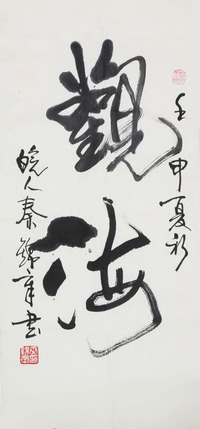 壬申夏初
觀海
皖人秦錦章書